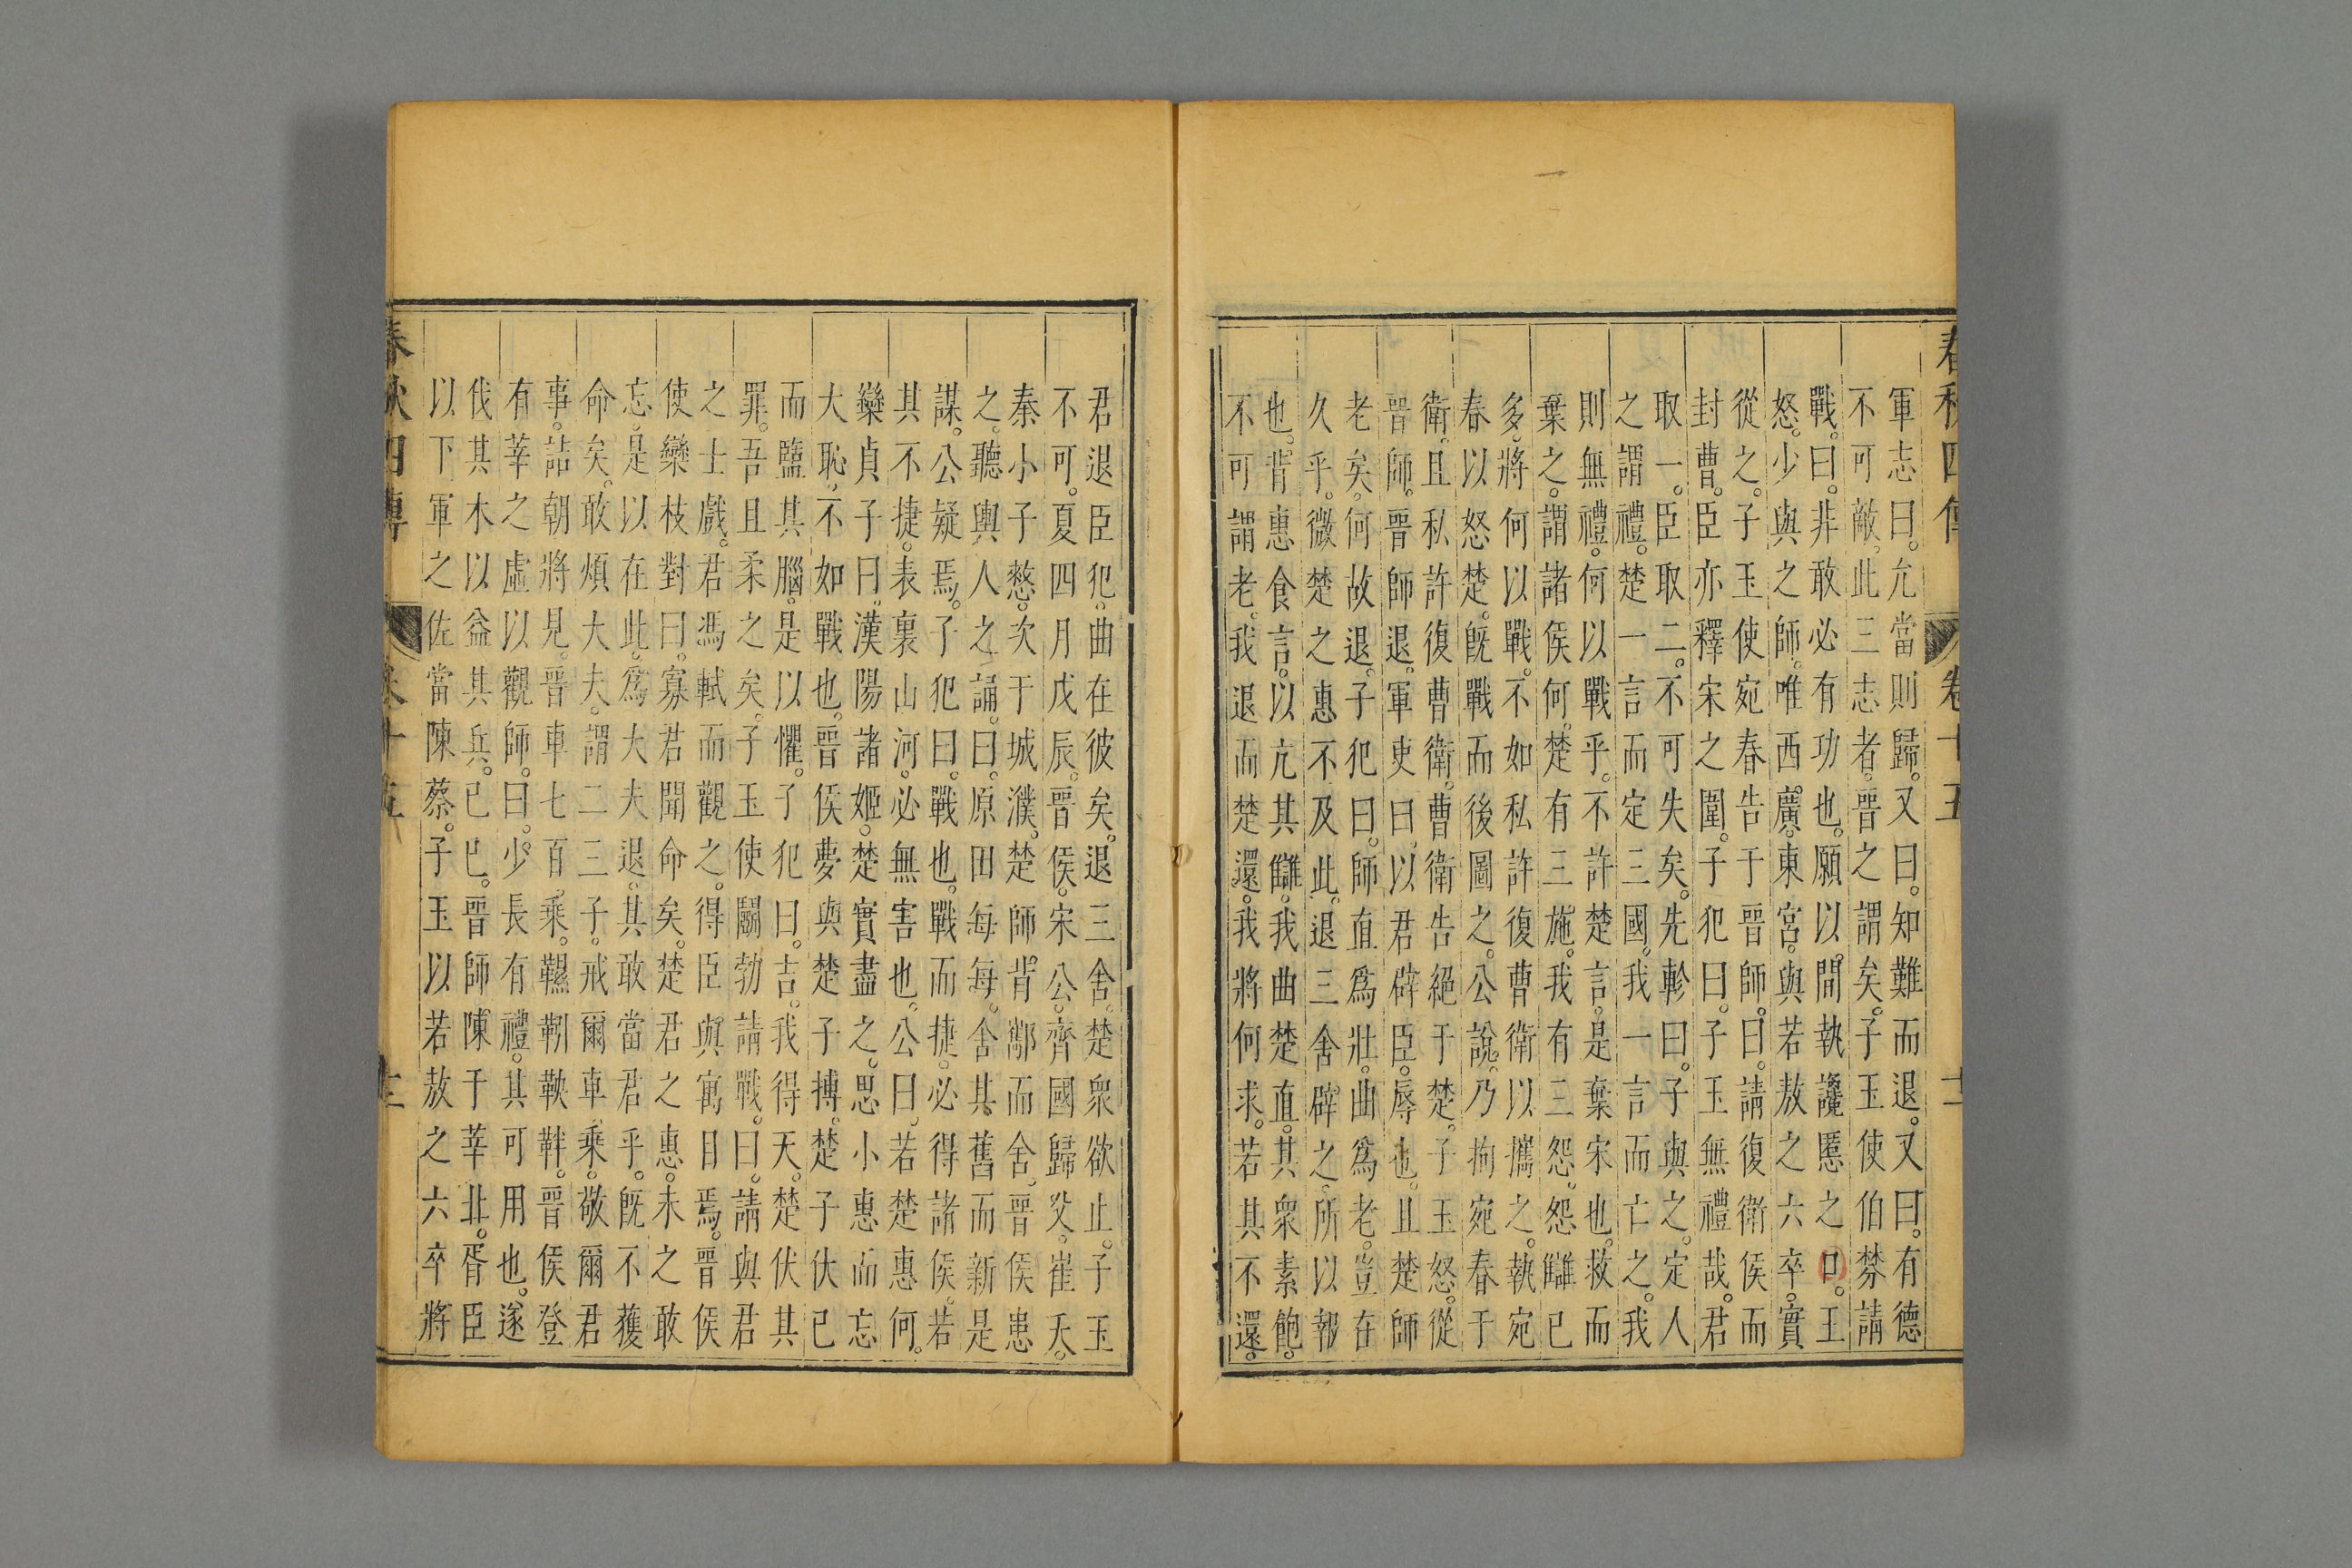 春秋四傳 卷十五 十二
軍志曰。允當則歸。又曰。知難而退。又曰。有德
不可敵。此三志者。晉之謂矣。子玉使伯棼請
戰。曰。非敢必有功也。願以間執讒慝之口。王
怒。少與之師。唯西廣。東宮。與若敖之六卒。實
從之。子玉使宛春告于晉師。曰。請復衛侯而
封曹。臣亦釋宋之圍。子犯曰。子玉無禮哉。君
取一。臣取二。不可失矣。先軫曰。子與之。定人
之謂禮。楚一言而定三國。我一言而亡之。我
則無禮。何以戰乎。不許楚言。是棄宋也。救而
棄之。謂諸侯何。楚有三施。我有三怨。怨讎已
多。將何以戰。不如私許復曹衛以攜之。執宛
春以怒楚。旣戰而後圖之。公說。乃拘宛春于
衛。且私許復曹衛。曹衛告絕于楚。子玉怒。從
晉師。晉師退。軍吏曰。以君辟臣。辱也。且楚師
老矣。何故退。子犯曰。師直爲壯。曲爲老。豈在
久乎。微楚之惠不及此。退三舍辟之。所以報
也。背惠食言。以亢其讎。我曲楚直。其衆素飽。
不可謂老。我退而楚還。我將何求。若其不還。
君退臣犯。曲在彼矣。退三舍。楚衆欲止。子玉
不可。夏四月戊辰。晉侯。宋公。齊國歸父。崔夭。
秦小子憖。次于城濮。楚師背酅而舍。晉侯患
之。聽輿人之誦。曰。原田每每。舍其舊而新是
謀。公疑焉。子犯曰。戰也。戰而捷。必得諸侯。若
其不捷。表裏山河。必無害也。公曰。若楚惠何。
欒貞子曰。漢陽諸姬。楚實盡之。思小惠而忘
大恥。不如戰也。晉侯夢與楚子搏。楚子伏已
而盬其腦。是以懼。子犯曰。吉。我得天。楚伏其
罪。吾且柔之矣。子玉使鬬勃請戰。曰。請與君
之士戲。君馮軾而觀之。得臣與寓目焉。晉侯
使欒枝對曰。寡君聞命矣。楚君之惠。未之敢
忘。是以在此。爲大夫退。其敢當君乎。旣不獲
命矣。敢煩大夫。謂二三子。戒爾車乘。敬爾君
事。詰朝將見。晉車七百乘。韅靷鞅靽。晉侯登
有莘之虛以觀師。曰。少長有禮。其可用也。遂
伐其木以益其兵。己巳。晉師陳于莘北。胥臣
以下軍之佐當陳蔡。子玉以若敖之六卒將
春秋四傳 卷十五